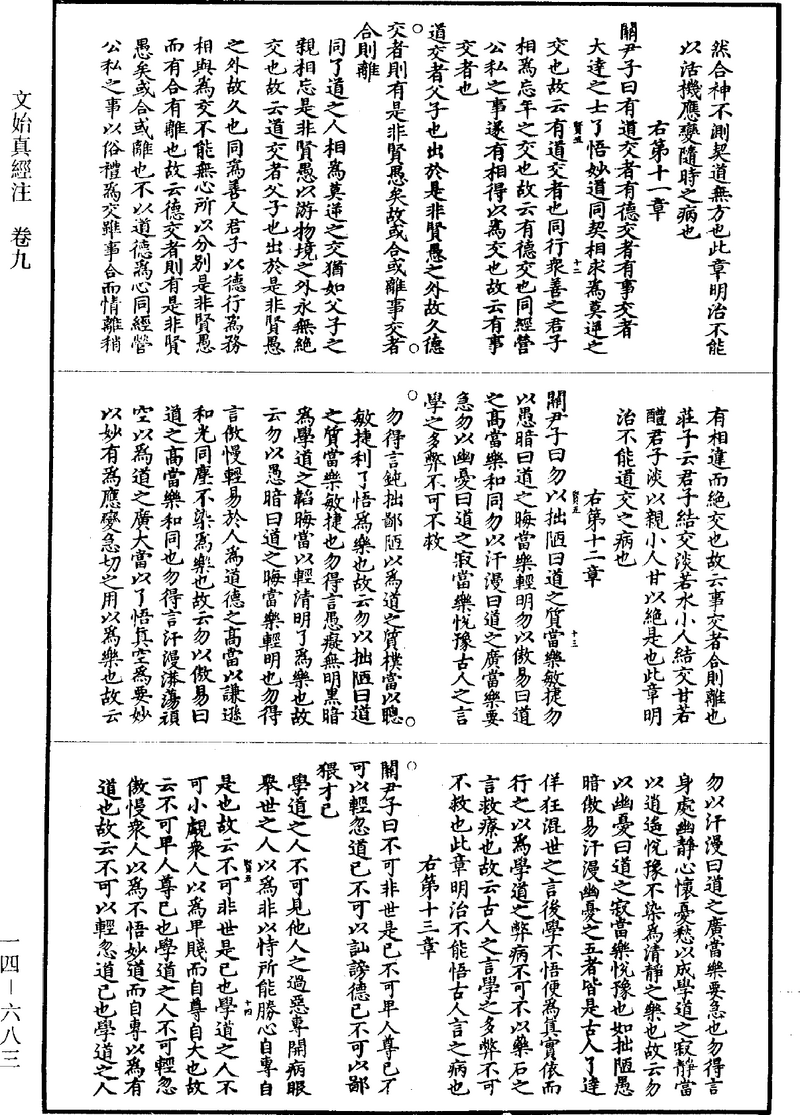 然合神不測契道無方也此章明治不能
以活機應變隨時之病也
右第十一章
關尹子曰有道交者有德交者有事交者
大達之士了悟妙道同契相求為莫逆之
交也故云有道交者也同行衆善之君子
相為忘年之交也故云有德交也同經營
公私之事遂有相得以為交也故云有事
交者也
道交者父子也出於是非賢愚之外故久德
交者則有是非賢愚矣故或合或離事交者
合則離
同了道之人相為莫逆之交猶如父子之
親相忘是非賢愚以游物境之外永無絕
交也故云道交者父子也出於是非賢愚
之外故久也同為善人君子以德行為務
相與為交不能無心所以分别是非賢愚
而有合有離也故云德交者則有是非賢
愚矣或合或離也不以道德為心同經營
公私之事以俗禮為交雖事合而情離稍
有相違而絕交也故云事交者合則離也
莊子云君子結交淡若水小人結交甘若
醴君子淡以親小人甘以絕是也此章明
治不能道交之病也
右第十二章
關尹子曰勿以拙陋曰道之質當樂敏捷勿
以愚暗曰道之晦當樂輕明勿以傲易曰道
之高當樂和同勿以汗漫曰道之廣當樂要
急勿以幽憂曰道之寂當樂悅豫古人之言
學之多弊不可不救
勿得言鈍拙鄙陋以為道之質樸當以聰
敏捷利了悟為樂也故云勿以拙陋曰道
之質當樂敏捷也勿得言愚癡無明黑暗
為學道之韜晦當以輕清明了為樂也故
云勿以愚暗曰道之晦當樂輕明也勿得
言傲慢輕易於人為道德之高當以謙遜
和光同塵不染為樂也故云勿以傲易曰
道之高當樂和同也勿得言汗漫漭蕩頑
空以為道之廣大當以了悟真空為要妙
以妙有為應變急切之用以為樂也故云
勿以汗漫曰道之廣當樂要急也勿得言
身處幽靜心懷憂愁以成學道之寂靜當
以逍遙悅豫不染為清靜之樂也故云勿
以幽憂曰道之寂當樂悅豫也如拙陋愚
暗傲易汗漫幽憂之五者皆是古人了達
佯狂混世之言後學不悟便為真實依而
行之以為學道之弊病不可不以藥石之
言救療也故云古人之言學之多弊不可
不救也此章明治不能悟古人言之病也
右第十三章
關尹子曰不可非世是已不可卑人尊已不
可以輕忽道已不可以訕謗德已不可以鄙
猥才已
學道之人不可見他人之過惡專開病眼
舉世之人以為非以恃所能勝心自專自
是也故云不可非世是已也學道之人不
可小覷衆人以為卑賤而自尊自大也故
云不可卑人尊已也學道之人不可輕忽
傲慢衆人以為不悟妙道而自專以為有
道也故云不可以輕忽道已也學道之人
文始真經注 卷九
一四－六八三